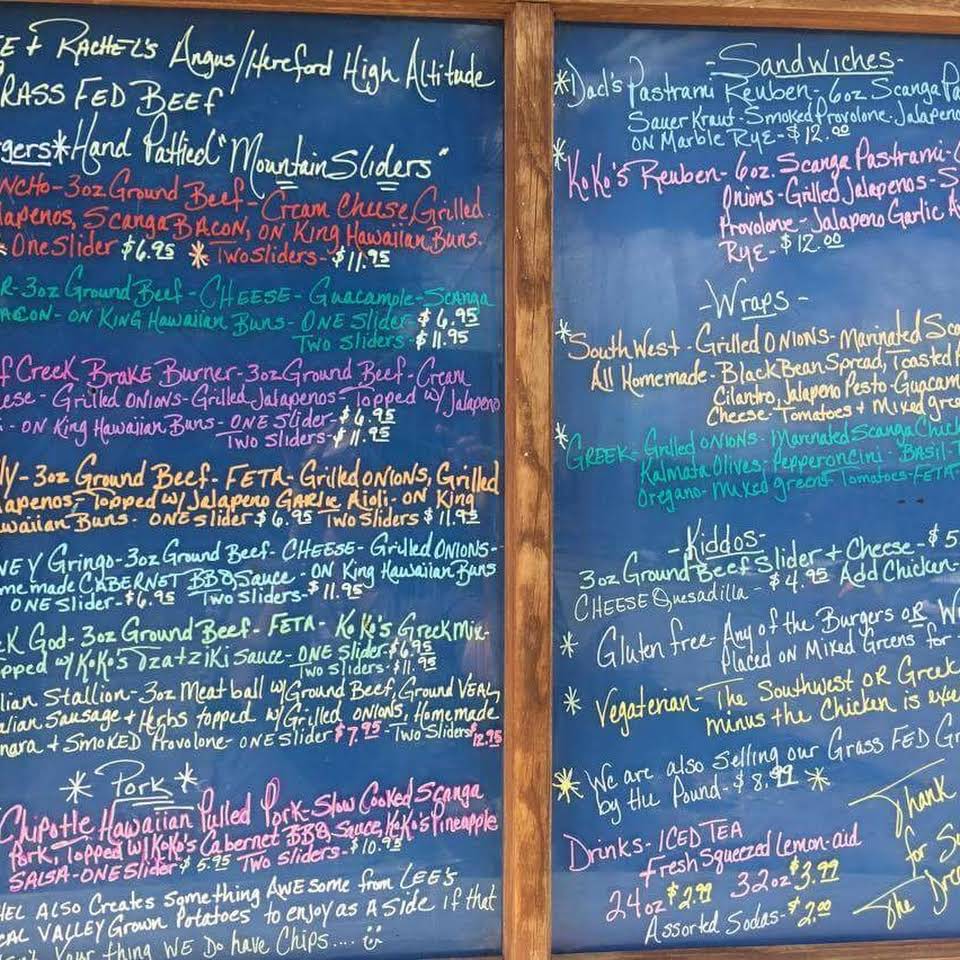 E + RACHEL'S Angus/Hereford High Altitude
RASS FED BEEF
gers*Hand Pattied "MountainSliders"
NCHO-3oz Ground Beef- Cream Cheese, Grilled
lapenos, Scanga BACON, ON King Hawaiian Buns.
* One Slider $6.95 * Two Sliders- $11.95
R-3oz Ground Beef-CHEESE- Guacamole-Scanga
ACON- ON KING Hawaiian Buns- ONE Slider- $6.95
Two Sliders- $11.95
f Creek BRAKE Burner-3oz Ground Beef-Cream
ese- Grilled ONIONS-Grilled Jalapenos- Topped w/ Jalapeno
- ON King Hawaiian Buns- ONE Slider- $6.95
Two Sliders- $11.95
Y-3oz Ground Beef- FETA- Grilled ONIONS, Grilled
lapenos- Topped w/ Jalapeno GARLIC Aioli- ON King
waiian Buns- ONE slider $6.95 Two Sliders $11.95
EY Gringo-3oz Ground Beef- CHEESE- Grilled ONIONS-
me made CABERNET BBQ Sauce- ON King Hawaiian Buns
ONE Slider-$6.95 Two Sliders-$11.95
EK God-3oz Ground Beef- FETA- KoKo's Greek Mix-
pped w/ KoKo's Tzatziki Sauce- ONE Slider $6.95
Two Sliders-$11.95
lian Stallion-3oz Meatball w/Ground Beef, Ground VEAL,
alian Sausage + Herbs topped w/Grilled ONIONS, Homemade
nara + SMOKED Provolone- ONE Slider $7.95 - Two Sliders $12.95
* Pork *
Chipotle Hawaiian Pulled Pork-Slow Cooked Scanga
Pork, Topped w/ KoKo's Cabernet BBQ Sauce, KoKo's Pineapple
SALSA-ONE Slider $5.95 Two Sliders-$10.95
HEL ALSO Creates Something AWESOME from LEE'S
CAL VALLEY Grown Potatoes to enjoy as A Side if that
Your thing WE Do have Chips....
-Sandwiches-
*Dad's Pastrami Reuben- 6oz Scanga Pa
Sauer Kraut- Smoked Provolone- Jalapeno
ON Marble RYE-$12.00
*KoKo's Reuben- 6oz. Scanga Pastrami-
Onions-Grilled Jalapenos-S
Provolone-Jalapeno Garlic A
RYE-$12.00
-Wraps-
*SouthWest-Grilled ONIONS-Marinated Sca
All Homemade-Black Bean Spread, Toasted
Cilantro, Jalapeno Pesto-Guacam
Cheese-Tomatoes + Mixed gre
*GREEK- Grilled ONIONS- Marinated Scanga Chick
Kalmata Olives- Pepperoncini- Basil-
Oregano-Mixed greens-Tomatoes-FETA
-Kiddos-
3oz Ground Beef Slider + Cheese-$5
CHEESE Quesadilla-$4.95 Add Chicken-
* Gluten free-Any of the Burgers OR W
Placed ON Mixed Greens for
* Vegaterian- The Southwest OR Greek
minus the Chicken is exc
* We are also Selling our Grass FED Gr
by the Pound-$8.99 *
Drinks- ICED TEA
Fresh Squeezed Lemon-aid
24oz $2.99 32oz $3.99
Assorted Sodas-$2.00
Thank
for Su
The Dre